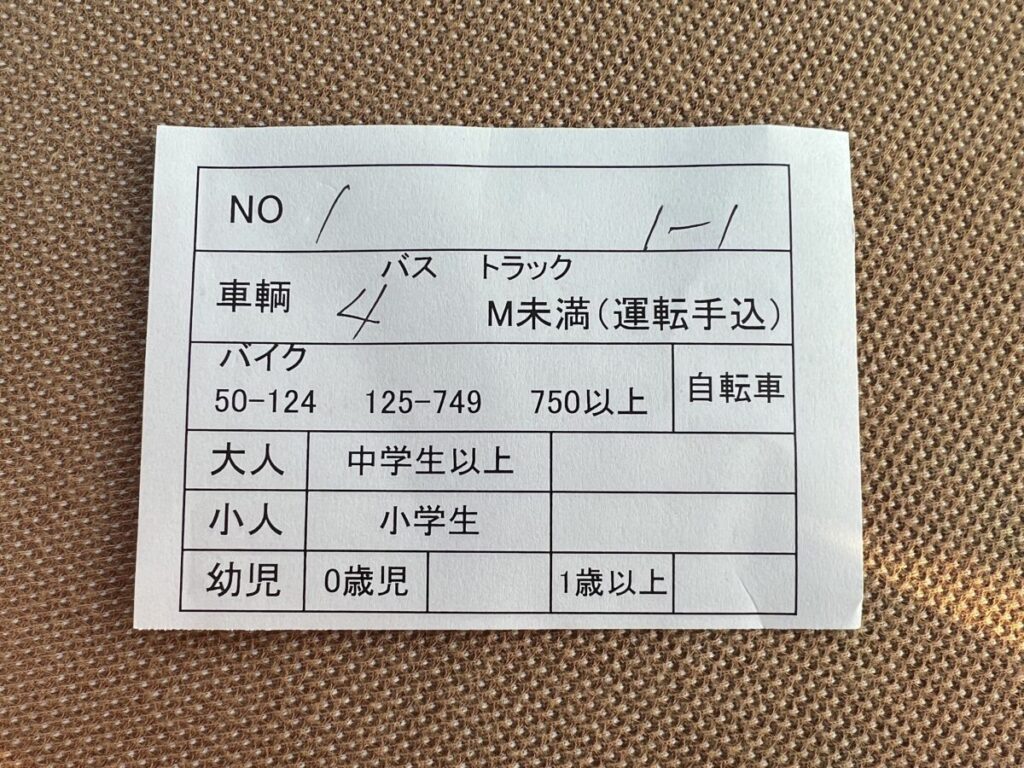 NO 1 1-1
バス トラック
車輌 4 M未満(運転手込)
バイク
50-124 125-749 750以上 自転車
大人 中学生以上
小人 小学生
幼児 0歳児 1歳以上